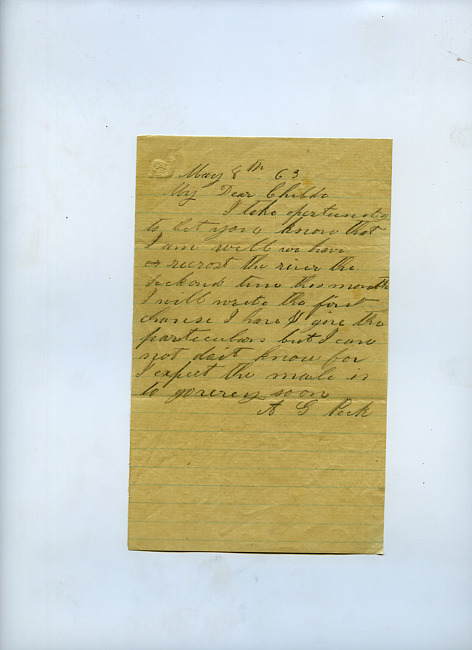 May 8th 63
My Dear Childs
I take opertunity
to let you know that
I am well we have
recrost the river the
seckond time this month
I will write the first
chanse I have & give the
particulars but I can
not doit know for
I expect the male is
to go soon
A G Peck